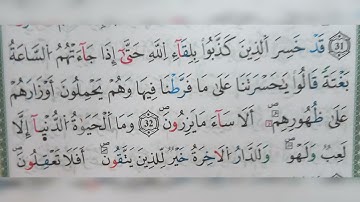 31 قَدْ خَسِرَ الَّذِينَ كَذَّبُوا بِلِقَاءِ اللَّهِ حَتَّىٰ إِذَا جَاءَتْهُمُ السَّاعَةُ
بَغْتَةً قَالُوا يَحَسْرَتَنَا عَلَىٰ مَا فَرَّطْنَا فِيهَا وَهُمْ يَحْمِلُونَ أَوْزَارَهُمْ
عَلَىٰ ظُهُورِهِمْ ۚ أَلَا سَاءَ مَايَزِرُونَ 32 وَمَا الْحَيَوٰةُ الدُّنْيَا إِلَّا
لَعِبٌ وَلَهْوٌ ۖ وَلَلدَّارُ الْآخِرَةُ خَيْرٌ لِّلَّذِينَ يَتَّقُونَ ۗ أَفَلَا تَعْقِلُونَ